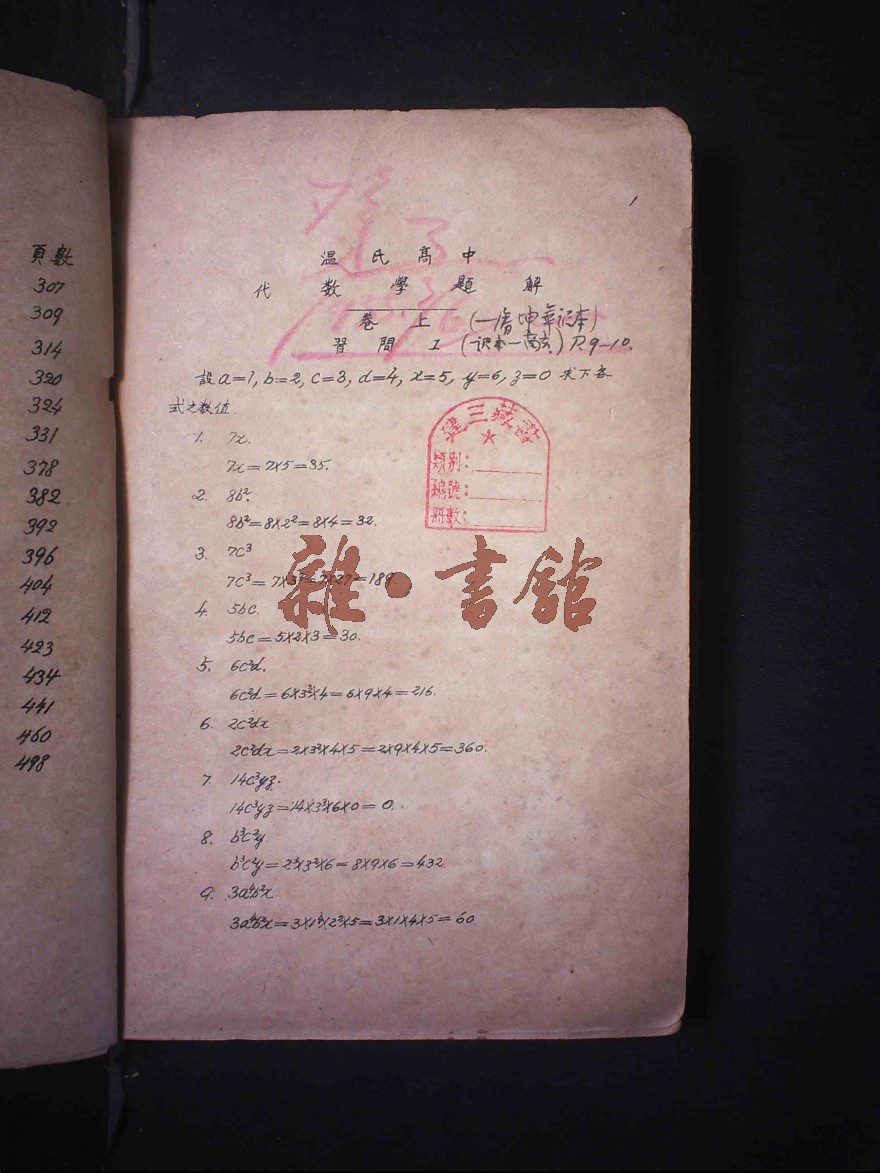 頁數
307
309
314
320
324
331
378
382
392
396
404
412
423
434
441
460
498
1
温氏高中
代數學題解
卷上
習問 I P.9-10.
設 a=1, b=2, c=3, d=4, x=5, y=6, z=0 求下各
式之数值.
1. 7x.
7x=7×5=35.
2. 8b².
8b²=8×2²=8×4=32.
3. 7c³
7c³=7×3³=7×27=189
4. 5bc.
5bc=5×2×3=30.
5. 6c²d.
6c²d=6×3²×4=6×9×4=216.
6. 2c²dx
2c²dx=2×3²×4×5=2×9×4×5=360.
7. 14c³yz.
14c³yz=14×3³×6×0=0.
8. b³c²y.
b³c²y=2³×3²×6=8×9×6=432.
9. 3a⁴b²x.
3a⁴b²x=3×1⁴×2²×5=3×1×4×5=60
建三藏書
類別:
編號:
冊數:
雜·書館